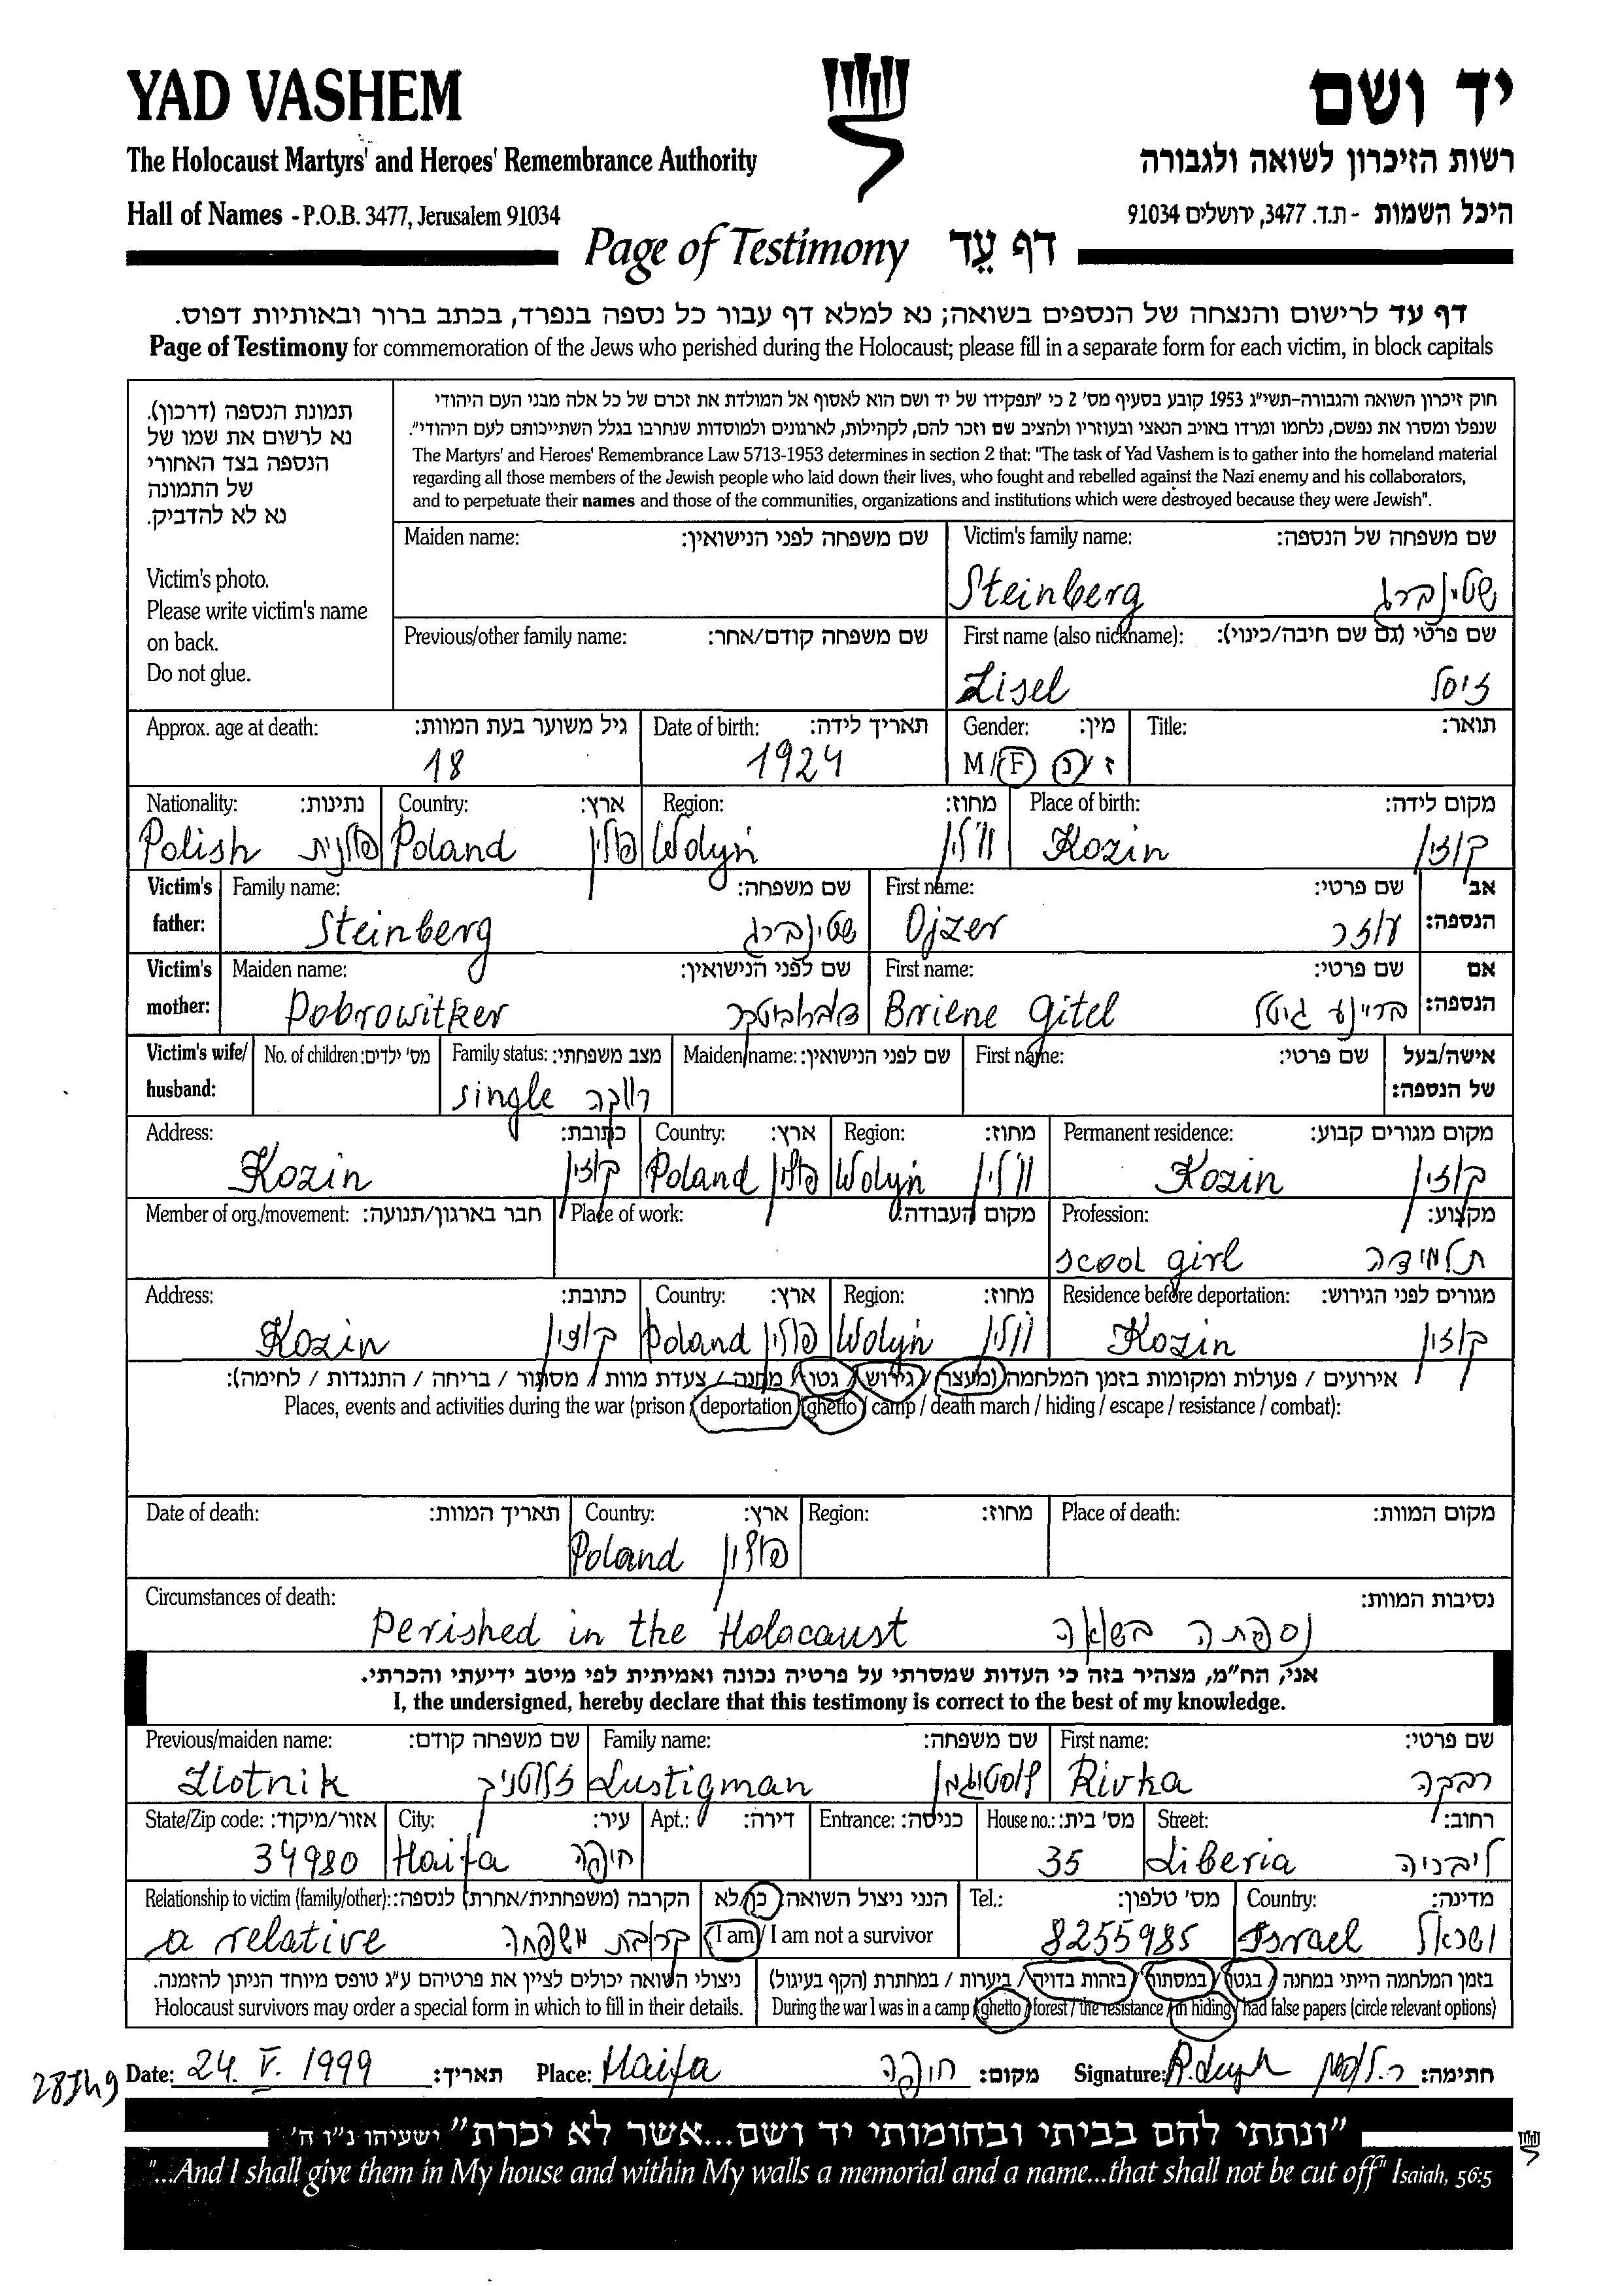 YAD VASHEM
יד ושם
The Holocaust Martyrs' and Heroes' Remembrance Authority
רשות הזיכרון לשואה ולגבורה
Hall of Names - P.O.B. 3477, Jerusalem 91034
היכל השמות - ת.ד. 3477, ירושלים 91034
Page of Testimony דף עֵד
דף עד לרישום והנצחה של הנספים בשואה; נא למלא דף עבור כל נספה בנפרד, בכתב ברור ובאותיות דפוס.
Page of Testimony for commemoration of the Jews who perished during the Holocaust; please fill in a separate form for each victim, in block capitals
תמונת הנספה (דרכון).
נא לרשום את שמו של
הנספה בצד האחורי
של התמונה
נא לא להדביק.
Victim's photo.
Please write victim's name
on back.
Do not glue.
חוק זיכרון השואה והגבורה-תשי"ג 1953 קובע בסעיף מס' 2 כי "תפקידו של יד ושם הוא לאסוף אל המולדת את זכרם של כל אלה מבני העם היהודי
שנפלו ומסרו את נפשם, נלחמו ומרדו באויב הנאצי ובעוזריו ולהציב שם וזכר להם, לקהילות, לארגונים ולמוסדות שנחרבו בגלל השתייכותם לעם היהודי".
The Martyrs' and Heroes' Remembrance Law 5713-1953 determines in section 2 that: "The task of Yad Vashem is to gather into the homeland material
regarding all those members of the Jewish people who laid down their lives, who fought and rebelled against the Nazi enemy and his collaborators,
and to perpetuate their names and those of the communities, organizations and institutions which were destroyed because they were Jewish".
Maiden name: שם משפחה לפני הנישואין: Victim's family name: שם משפחה של הנספה:
Steinberg שטינברג
Previous/other family name: שם משפחה קודם/אחר: First name (also nickname): שם פרטי (גם שם חיבה/כינוי):
Zisel זיסל
Approx. age at death: גיל משוער בעת המוות: Date of birth: תאריך לידה: Gender: מין: Title: תואר:
18 1924 M / F ז / נ
Nationality: נתינות: Country: ארץ: Region: מחוז: Place of birth: מקום לידה:
Polish פולנית Poland פולין Wolyń ווילין Kozin קוזין
Victim's father: Family name: שם משפחה: First name: שם פרטי: אב הנספה:
Steinberg שטינברג Ojzer עוזר
Victim's mother: Maiden name: שם לפני הנישואין: First name: שם פרטי: אם הנספה:
Dobrowitker דוברוביטקר Briene Gitel בריינע גיטל
Victim's wife/ husband: No. of children: מס' ילדים: Family status: מצב משפחתי: Maiden name: שם לפני הנישואין: First name: שם פרטי: אישה/בעל של הנספה:
single רווקה
Address: כתובת: Country: ארץ: Region: מחוז: Permanent residence: מקום מגורים קבוע:
Kozin קוזין Poland פולין Wolyń ווילין Kozin קוזין
Member of org./movement: חבר בארגון/תנועה: Place of work: מקום העבודה: Profession: מקצוע:
scool girl תלמידה
Address: כתובת: Country: ארץ: Region: מחוז: Residence before deportation: מגורים לפני הגירוש:
Kozin קוזין Poland פולין Wolyń ווילין Kozin קוזין
אירועים / פעולות ומקומות בזמן המלחמה (מעצר / גירוש / גטו / מחנה / צעדת מוות / מסתור / בריחה / התנגדות / לחימה):
Places, events and activities during the war (prison / deportation / ghetto / camp / death march / hiding / escape / resistance / combat):
Date of death: תאריך המוות: Country: ארץ: Region: מחוז: Place of death: מקום המוות:
Poland פולין
Circumstances of death: נסיבות המוות:
Perished in the Holocaust נספתה בשואה
אני, הח"מ, מצהיר בזה כי העדות שמסרתי על פרטיה נכונה ואמיתית לפי מיטב ידיעתי והכרתי.
I, the undersigned, hereby declare that this testimony is correct to the best of my knowledge.
Previous/maiden name: שם משפחה קודם: Family name: שם משפחה: First name: שם פרטי:
Zlotnik זלוטניק Lustigman לוסטיגמן Rivka רבקה
State/Zip code: אזור/מיקוד: City: עיר: Apt.: דירה: Entrance: כניסה: House no.: מס' בית: Street: רחוב:
34980 Haifa חיפה 35 Liberia ליבריה
Relationship to victim (family/other): הקרבה (משפחתית/אחרת) לנספה: הנני ניצול השואה: כן/לא Tel.: מס' טלפון: Country: מדינה:
a relative קרובת משפחה I am / I am not a survivor 8255985 Israel ישראל
ניצולי השואה יכולים לציין את פרטיהם ע"ג טופס מיוחד הניתן להזמנה. בזמן המלחמה הייתי במחנה / בגטו / במסתור / בזהות בדויה / ביערות / במחתרת (הקף בעיגול)
Holocaust survivors may order a special form in which to fill in their details. During the war I was in a camp / ghetto / forest / the resistance / in hiding / had false papers (circle relevant options)
Date: 24. V. 1999 תאריך: Place: Haifa חיפה מקום: Signature: חתימה:
"ונתתי להם בביתי ובחומותי יד ושם...אשר לא יכרת" ישעיהו נ"ו ה'
"...And I shall give them in My house and within My walls a memorial and a name...that shall not be cut off" Isaiah, 56:5